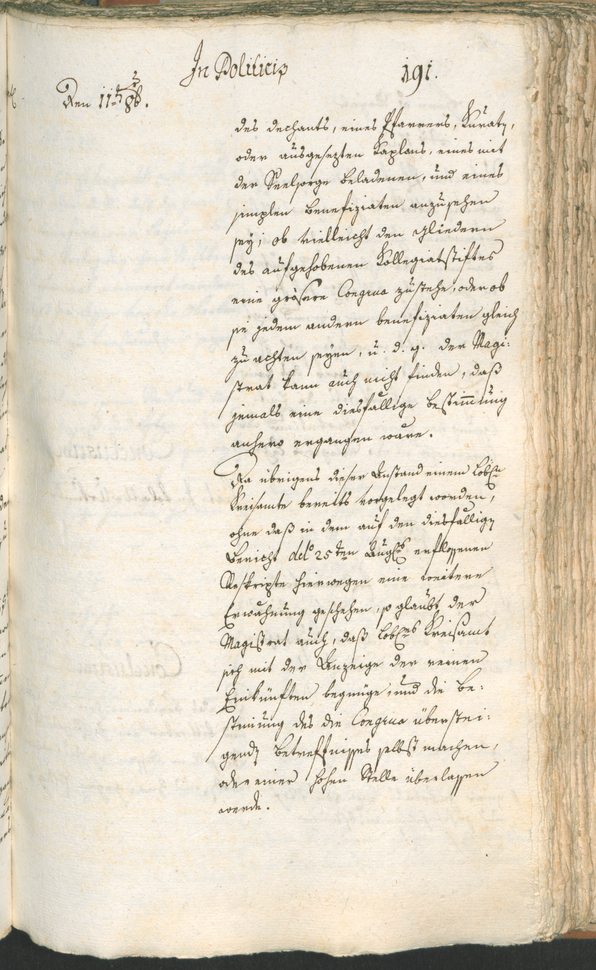 In Politicis
191.
Den 11t 7br 86.
des Dechants, eines Pfarrers, Kuraty,
oder ausgesezten Kaplans, eines mit
der Seelsorge beladenen, und eines
simplen Benefiziaten anzusehen
sey; ob vielleicht den Gliedern
des aufgehobenen Kollegiatstiftes
eine grösere Congrua zustehe, oder ob
sie jedem andern Benefiziaten gleich
zu achten seyen, u. d. g. der Magi:
strat kann auch nicht finden, daß
jemals eine diesfällige Bestimmung
anhero ergangen wäre.
Da übrigens dieser Anstand einem Löbl
Kreisamte bereits vorgelegt worden,
ohne daß in dem auf den diesfällign
Bericht ddto 25ten Augs erflossenen
Reskripte hierwegen eine weitere
Erwähnung geschehen, so glaubt der
Magistrat auch, daß Löbles Kreisamt
sich mit der Anzeige der reinen
Einkünften begnüge, und die Be:
stimung des die Congrua überstei:
gends Betreffnisses selbst machen,
oder einer hohen Stelle überlassen
werde.